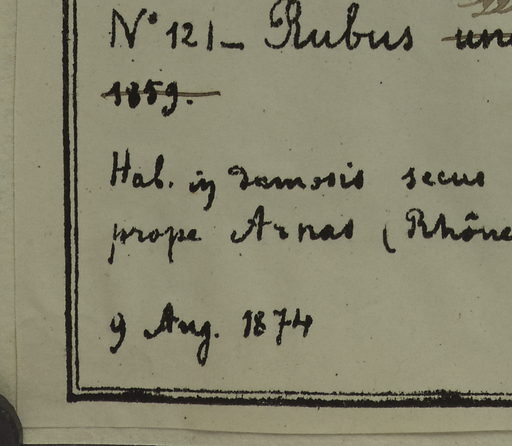 N° 121_ Rubus
1859.
Hab. in dumosis secus
prope Arnas (Rhône
9 Aug. 1874